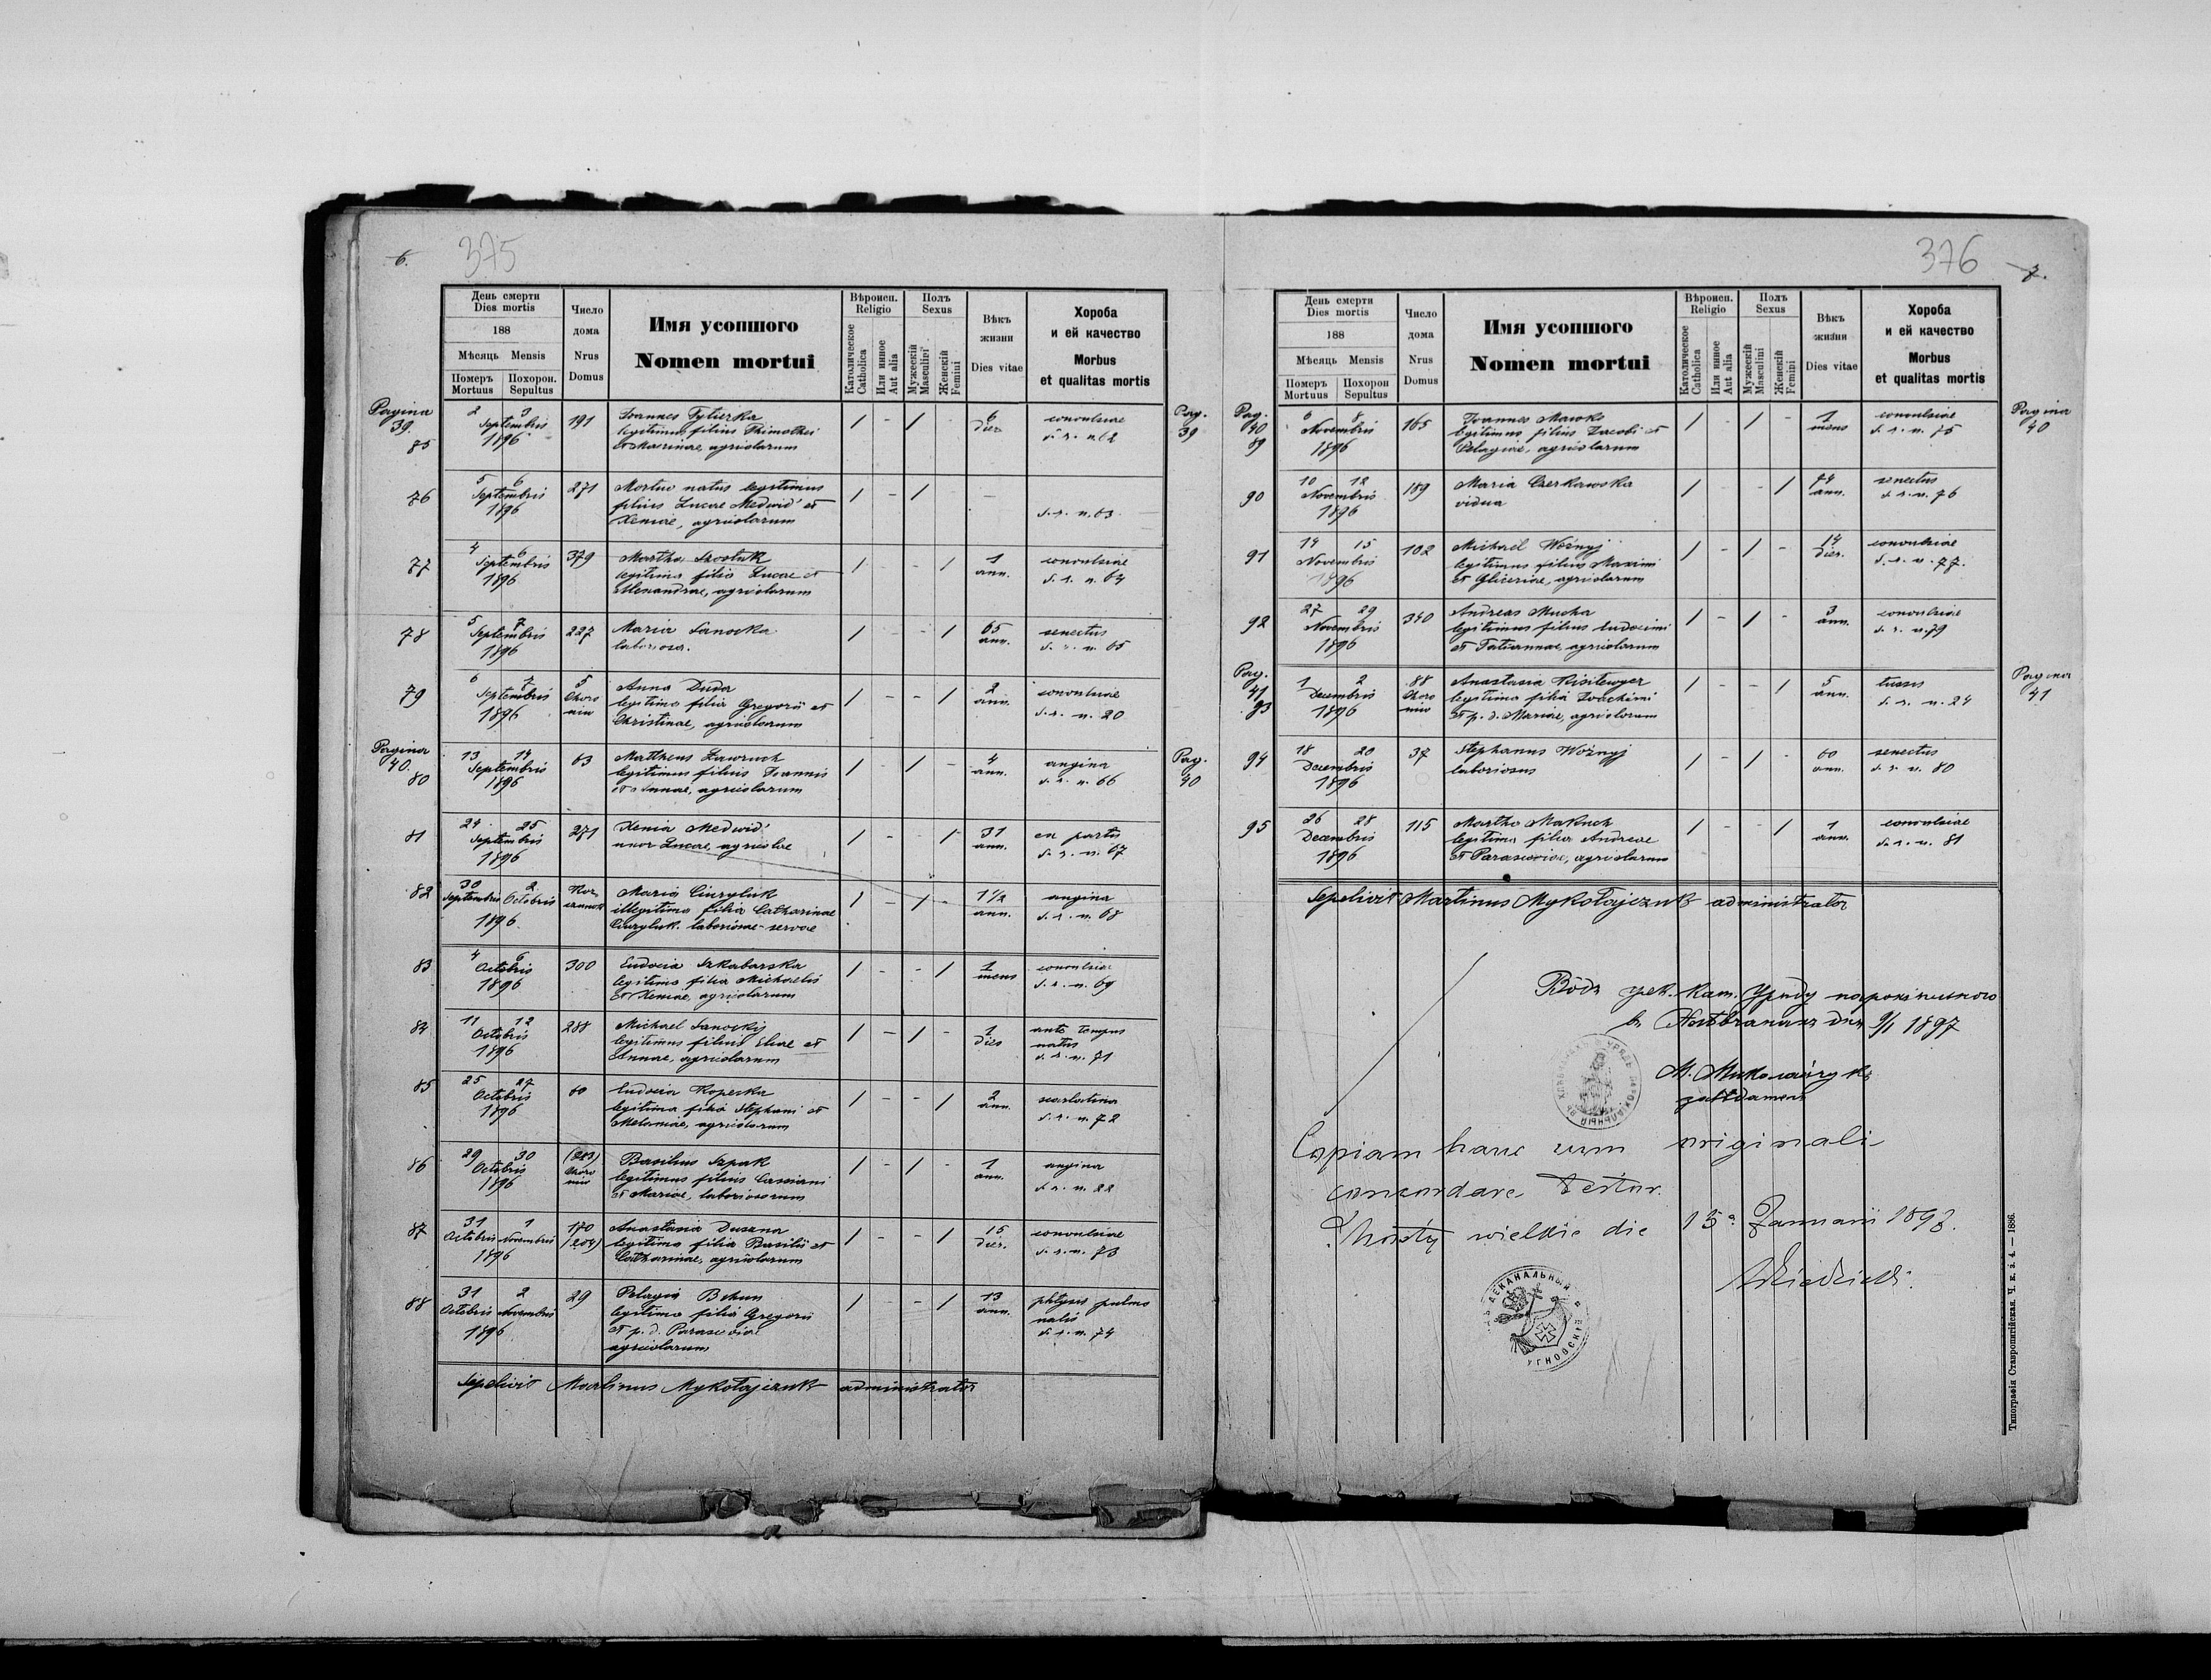 6.
375
День смерти
Dies mortis
188
Мѣсяць Mensis
Померъ Mortuus
Похорон. Sepultus
Число дома
Nrus Domus
Имя усопшого
Nomen mortui
Вѣроисп.
Religio
Католическое Catholica
Или инное Aut alia
Полъ
Sexus
Мужескій Masculini
Женскій Femini
Вѣкъ жизни
Dies vitae
Хороба
и ей качество
Morbus
et qualitas mortis
Pagina 39.
Pag. 39
85
2 3 Septembris 1896
191
Joannes
legitimus filius Thimothei
et Marinae, agricolarum
/ - / -
6 dies
convulsiae
s. r. n. 62
76
5 6 Septembris 1896
271
Mortuo natus legitimus
filius Lucae Medwid' et
Xeniae, agricolarum
/ - /
-
s. r. n. 63
77
4 6 Septembris 1896
379
Martha
legitima filia Lucae et
agricolarum
/ - - /
1 ann.
convulsiae
s. r. n. 64
78
5 7 Septembris 1896
227
Maria Sanocka
laboriosa.
/ - - /
65 ann.
senectus
s. r. n. 65
79
6 7 Septembris 1896
5 Choroniw
Anna Duda
legitima filia Gregorii et
Christinae, agricolarum
/ - - /
2 ann.
convulsiae
s. r. n. 20
Pagina 40.
Pag. 40
80
13 14 Septembris 1896
63
Mattheus Lawruch
legitimus filius Joannis
et Annae, agricolarum
/ - / -
4 ann.
angina
s. r. n. 66
81
24 25 Septembris 1896
271
Xenia Medwid'
uxor Lucae, agricolae
/ - /
31 ann.
ex partu
s. r. n. 67
82
30 Septembris 2 Octobris 1896.
Maria Ciuryluk
illegitima filia Catharinae
Ciuryluk laboriosae-servae
/ - / -
1 1/2 ann.
angina
s. r. n. 68
83
4 6 Octobris 1896
300
Eudocia Szkabarska
legitima filia Michaelis
et Xeniae, agricolarum
/ - - /
1 mens
convulsiae
s. r. n. 69
84
11 12 Octobris 1896
288
Michael Sanockij
legitimus filius Eliae et
Annae, agricolarum
/ - / -
1 dies
ante tempus
natus
s. r. n. 71
85
25 27 Octobris 1896
60
Eudocia Kopecka
legitima filia Stephani et
Melaniae, agricolarum
/ - - /
2 ann.
scarlatina
s. r. n. 72
86
29 30 Octobris 1896
Choroniw
Basilius Szpak
legitimus filius Cassiani
et Mariae, laboriosorum
/ - / -
1 ann.
angina
s. r. n. 22
87
31 Octobris 1 Novembris 1896
170
Anastasia Duszna
legitima filia Basilii et
Catharinae, agricolarum
/ - - /
15 dies.
convulsiae
s. r. n. 73
88
31 Octobris 2 Novembris 1896
29
Pelagia Behun
legitima filia Gregorii
et p. d. Parasceviae
agricolarum
/ - /
13 ann.
phtysis pulmo
nalis
s. r. n. 74
Sepelivit Martinus Mykołajczuk administrator
376
7.
День смерти
Dies mortis
188
Мѣсяць Mensis
Померъ Mortuus
Похорон Sepultus
Число дома
Nrus Domus
Имя усопшого
Nomen mortui
Вѣроисп.
Religio
Католическое Catholica
Или инное Aut alia
Полъ
Sexus
Мужескій Masculini
Женскій Femini
Вѣкъ жизни
Dies vitae
Хороба
и ей качество
Morbus
et qualitas mortis
Pag. 40
Pagina 40
89
6 8 Novembris 1896
165
Joannes Mawko
legitimus filius Jacobi et
Pelagiae, agricolarum
/ - / -
1 mens
convulsiae
s. r. n. 75
90
10 12 Novembris 1896
189
Maria Czerkawska
vidua
/ - - /
74 ann.
senectus
s. r. n. 76
91
14 15 Novembris 1896
102
Michael Woźnyj
legitimus filius Maximi
et Gliceriae, agricolarum
/ - / -
14 dies.
convulsiae
s. r. n. 77.
92
27 29 Novembris 1896
340
Andreas Mucha
legitimus filius Eudocimi
et Tatiannae, agricolarum
/ - / -
3 ann.
convulsiae
s. r. n. 79
Pag. 41
Pagina 41
93
1 2 Decembris 1896
88 Choroniw
Anastasia
legitima filia Joachimi
et p. d. Mariae, agricolarum
/ - - /
5 ann.
tussis
s. r. n. 24
94
18 20 Decembris 1896
37
Stephanus Woźnyj
laboriosus
/ - / -
60 ann.
senectus
s. r. n. 80
95
26 28 Decembris 1896
115
Martha Makuch
legitima filia Andreae
et Parasceviae, agricolarum
/ - - /
1 ann.
convulsiae
s. r. n. 81
Sepelivit Martinus Mykołajczuk administrator
Водъ грек. кат. Уряду парохіяльного
дня 9/1 1897
М.
Copiam hanc cum originali
concordare testor.
Mosty wielkie die 13a Januarii 1897.
Типографія Ставропигійская. Ч. к. з. 4. — 1886.